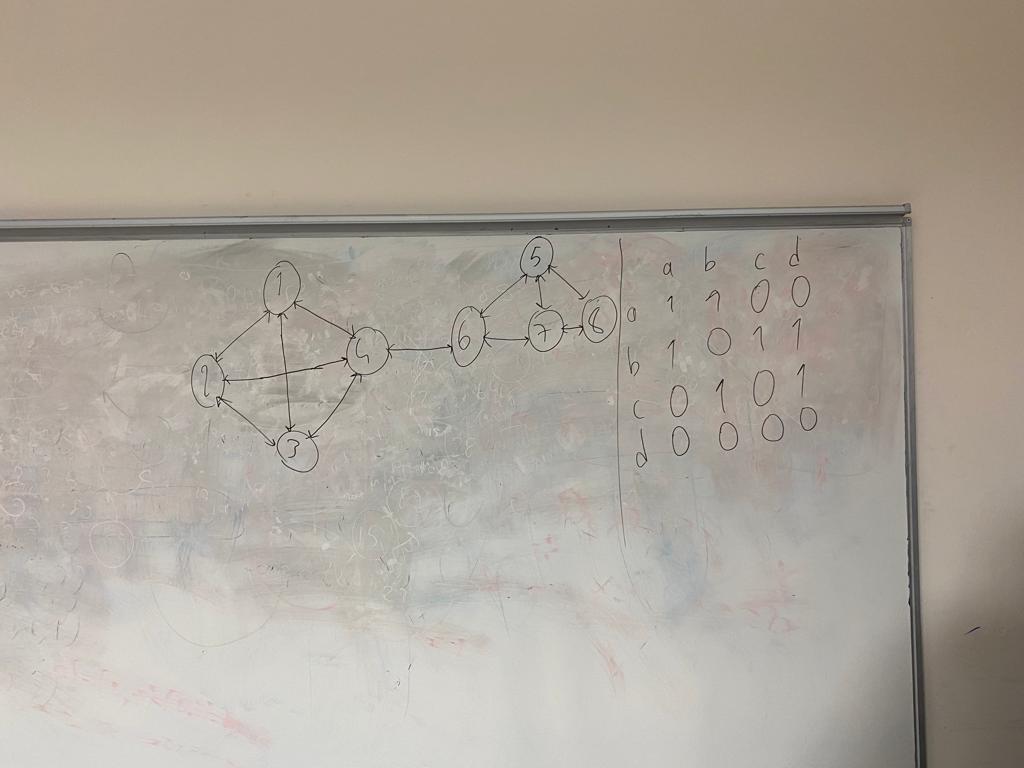 1
2
3
4
5
6
7
8
a b c d
a 1 1 0 0
b 1 0 1 1
c 0 1 0 1
d 0 0 0 0